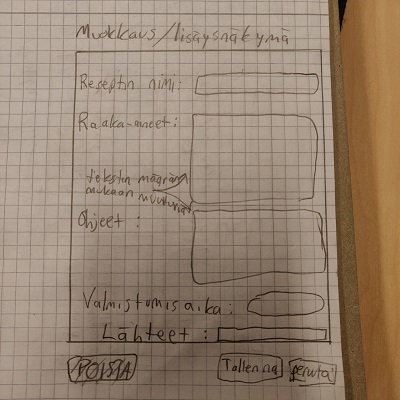 Muokkaus/lisäysnäkymä
Reseptin nimi:
Raaka-aineet:
tekstin määrän
mukaan muuttuvat
Ohjeet :
Valmistumisaika:
Lähteet :
POISTA
Tallenna
peruuta